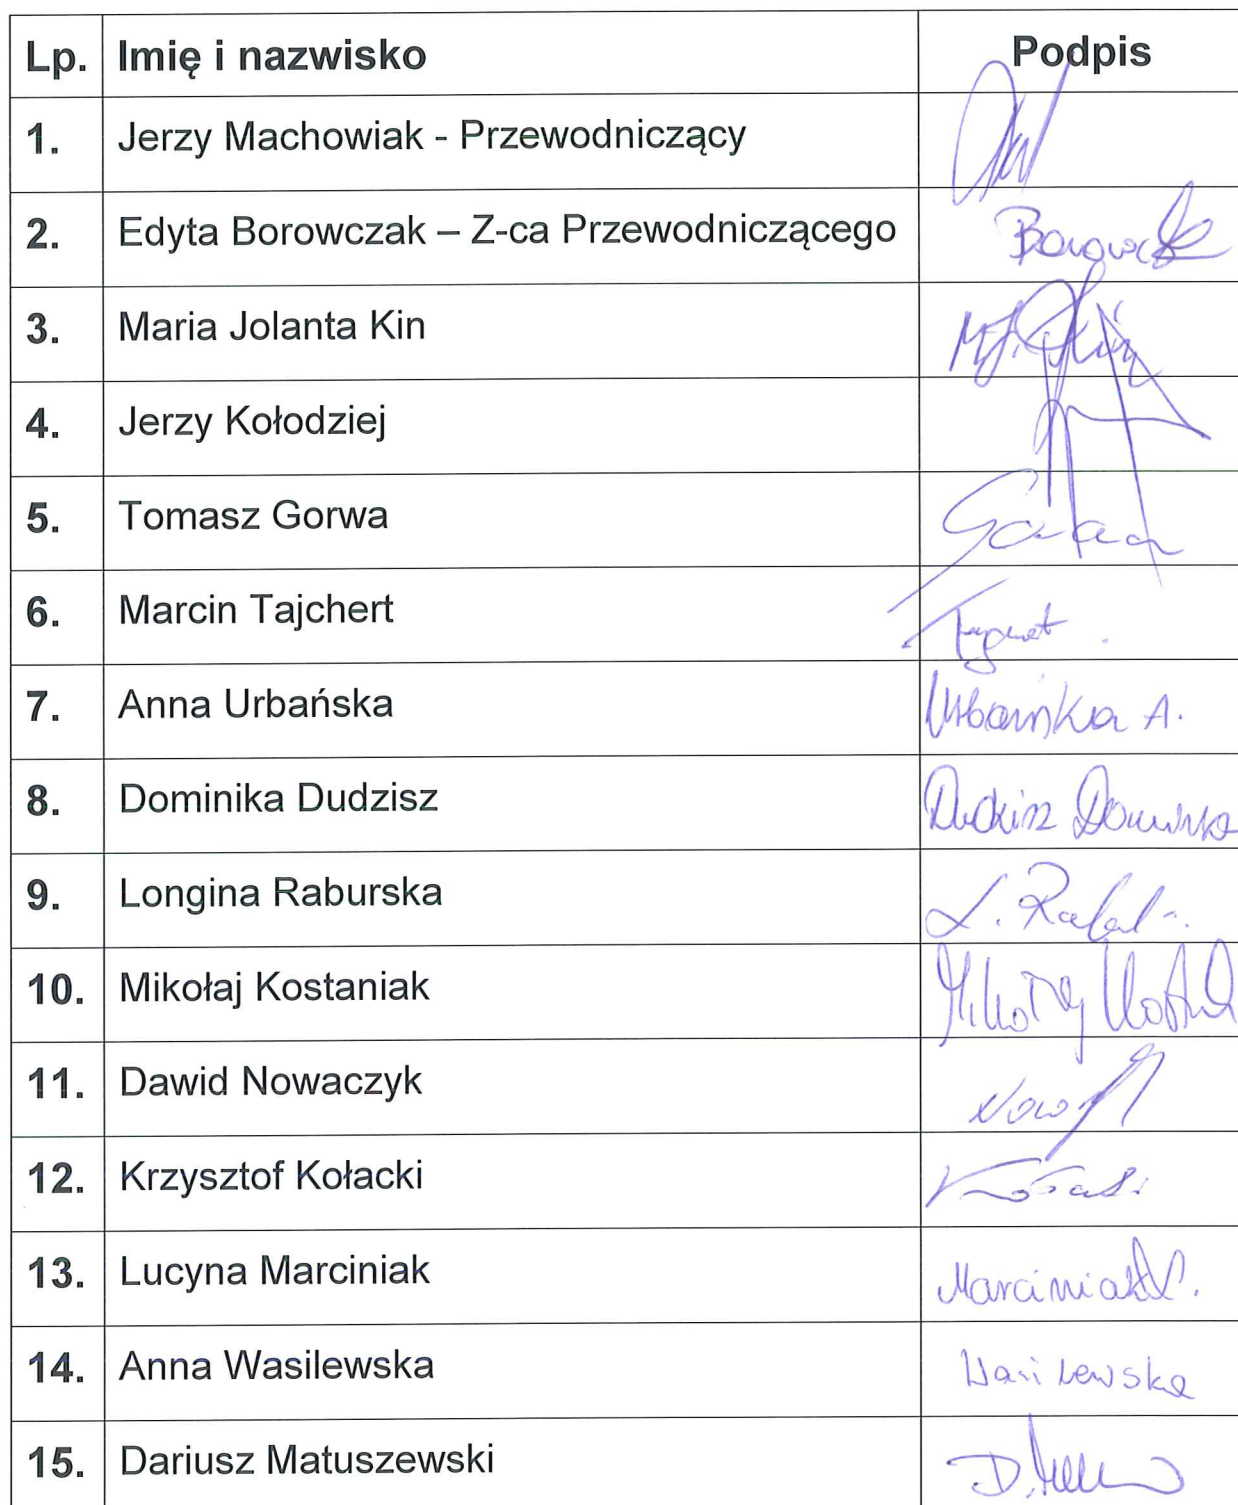 Lp. Imię i nazwisko Podpis
1. Jerzy Machowiak - Przewodniczący
2. Edyta Borowczak – Z-ca Przewodniczącego
3. Maria Jolanta Kin M.J. Kin
4. Jerzy Kołodziej
5. Tomasz Gorwa
6. Marcin Tajchert
7. Anna Urbańska Urbańska A.
8. Dominika Dudzisz Dudzisz Dominika
9. Longina Raburska L.
10. Mikołaj Kostaniak Mikołaj
11. Dawid Nowaczyk
12. Krzysztof Kołacki
13. Lucyna Marciniak Marciniak L.
14. Anna Wasilewska Wasilewska
15. Dariusz Matuszewski D.